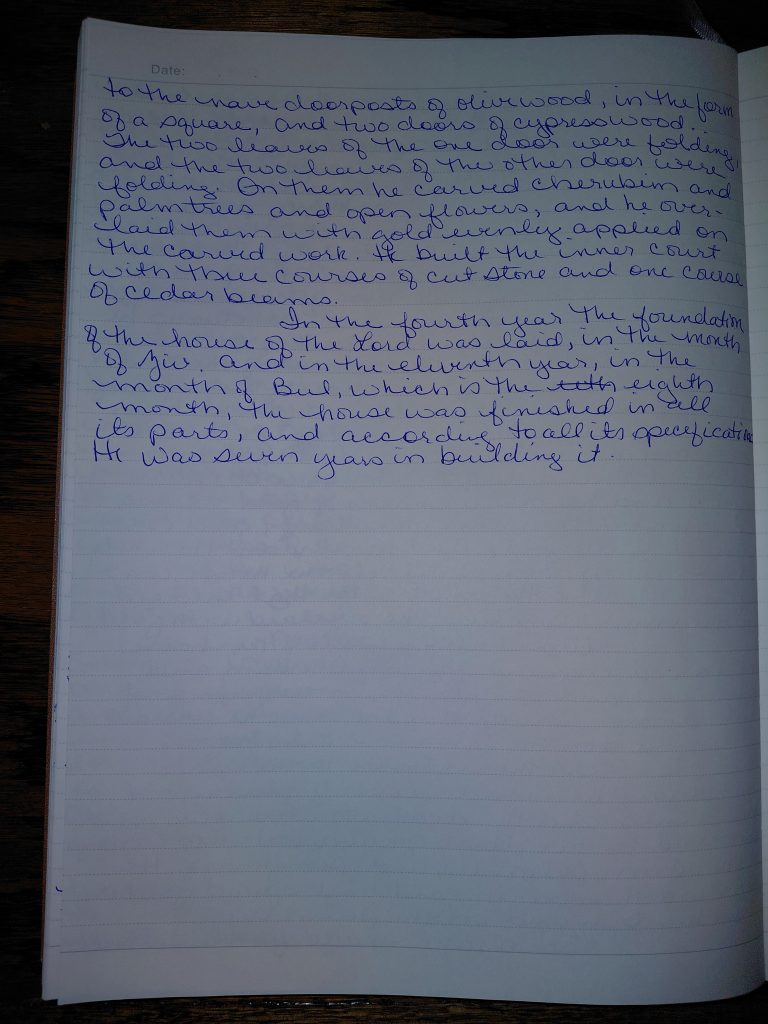 Date:
to the nave doorposts of olivewood, in the form
of a square, and two doors of cypress wood.
The two leaves of the one door were folding,
and the two leaves of the other door were
folding. On them he carved cherubim and
palmtrees and open flowers, and he over-
laid them with gold evenly applied on
the carved work. He built the inner court
with three courses of cut stone and one course
of cedar beams.
In the fourth year the foundation
of the house of the Lord was laid, in the month
of Ziv. and in the eleventh year, in the
month of Bul, which is the eighth
month, the house was finished in all
its parts, and according to all its specifications
He was seven years in building it.